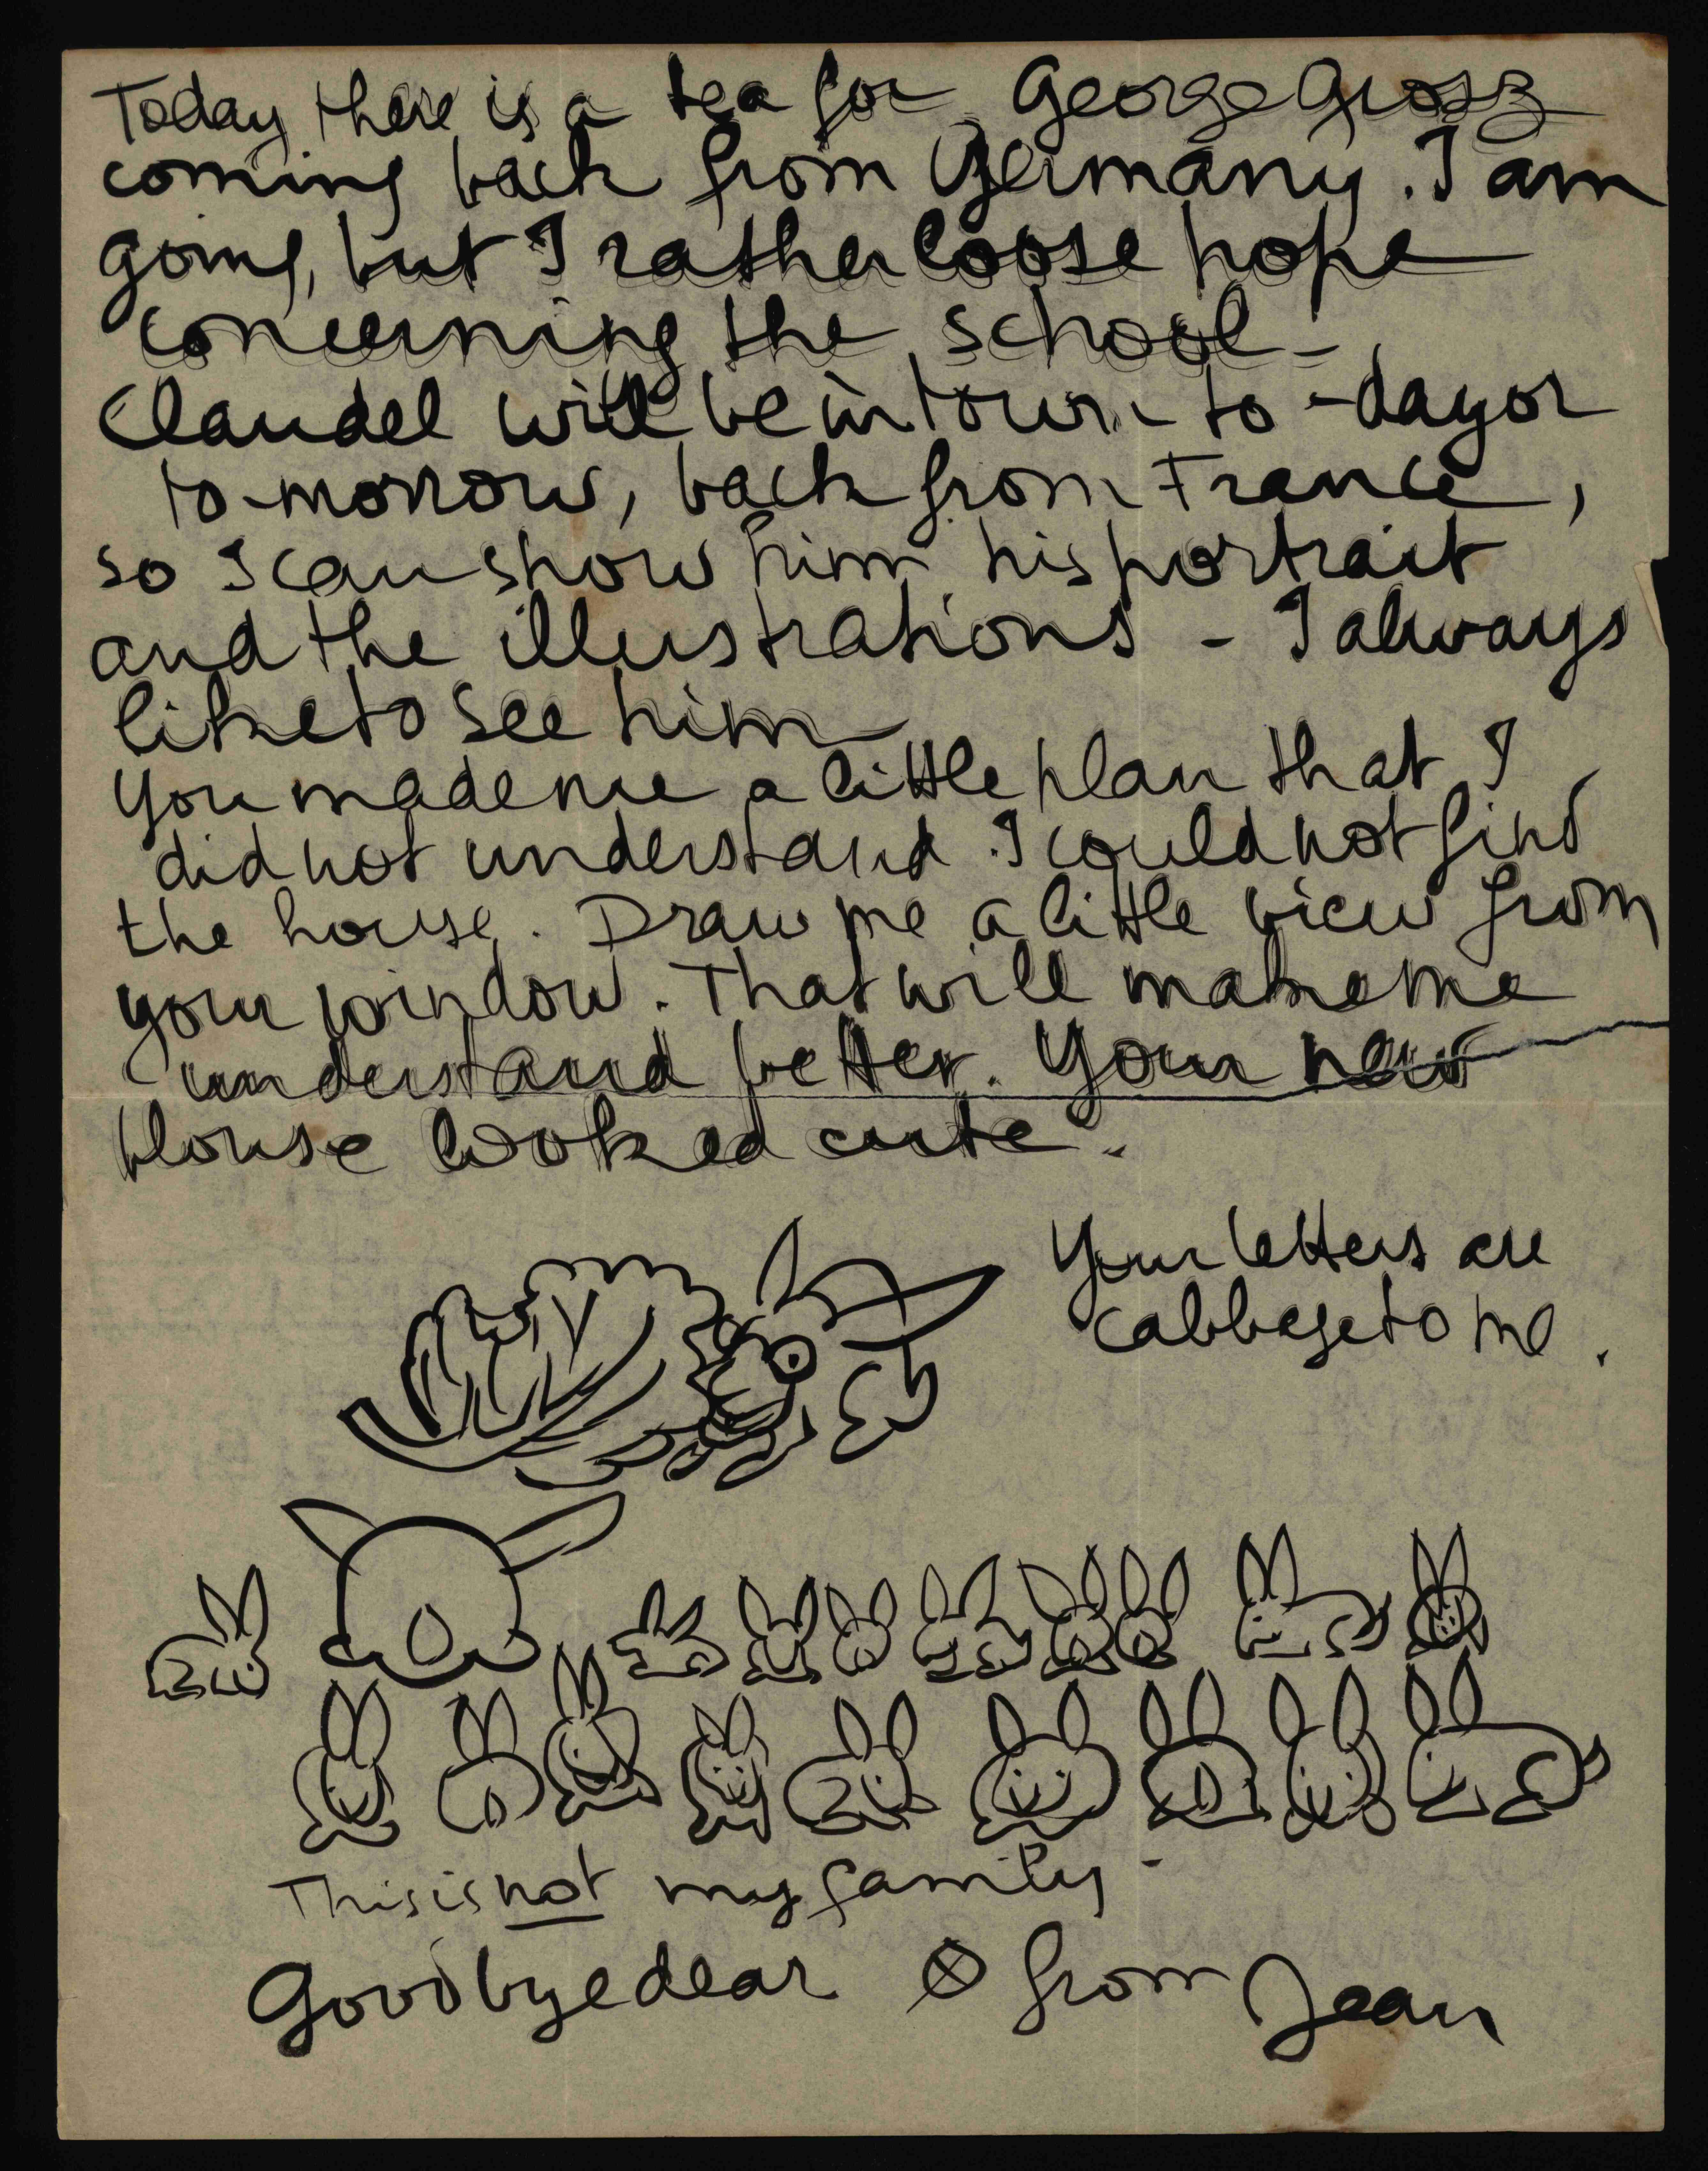 Today there is a tea for George Grosz
coming back from Germany. I am
going, but I rather loose hope
concerning the school -
Claudel will be in town to-day or
to-morrow, back from France,
so I can show him his portrait
and the illustrations - I always
like to see him
You made me a little plan that I
did not understand. I could not find
the house. Draw me a little view from
your window. That will make me
understand better. Your new
blouse looked cute.
Your letters are
cabbage to me.
This is not my family -
Goodbye dear ⊗ from Jean